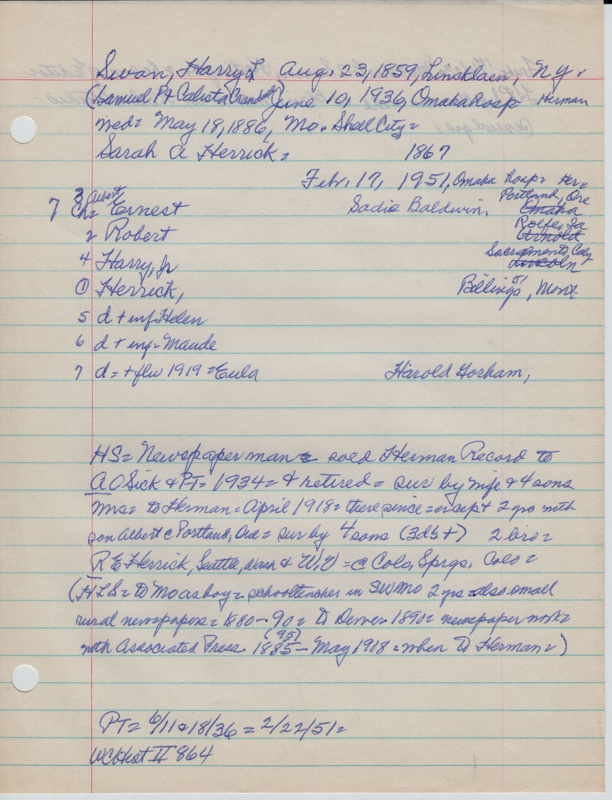 Swan, Harry L Aug. 23, 1859, Lincklaen, N.Y.
(Samuel P & Calista Crandall) June 10, 1936, Omaha hosp Herman
Wed = May 18, 1886, Mo. Shell City =
Sarah A Herrick = 1867
Febr. 17, 1951, Omaha hosp = Her =
7 Ch = 3 Albert Ernest Sadie Baldwin, Portland, Ore Omaha
2 Robert Rolfe, Ia Arnold
4 Harry, Jr Sacramento, Lincoln
1 Herrick, Billings, 51 Mont.
5 d + inf Helen
6 d + inf = Maude
7 d = + flu 1919 = Eula Harold Gorham,
HS = Newspaperman = sold Herman Record to
A O Sick & PT = 1934 = & retired = sur by wife & 4 sons
Mrs = to Herman = April 1918 = there since = except 2 yrs with
son Albert c Portland, Ore = sur by 4 sons (3 d b +) 2 bro =
R E Herrick, Seattle, Wash & = c Colo, Sprgs, Colo =
(HLS = to Mo as boy = schoolteacher in SW Mo 2 yrs = also small
rural newspapers = 1880 - 90 = to Denver 1890 = newspaper work =
with Associated Press 1885 (95) - May 1918 = when to Herman =)
PT = 6/11 & 18/36 = 2/22/51 =
WCoHist II 864